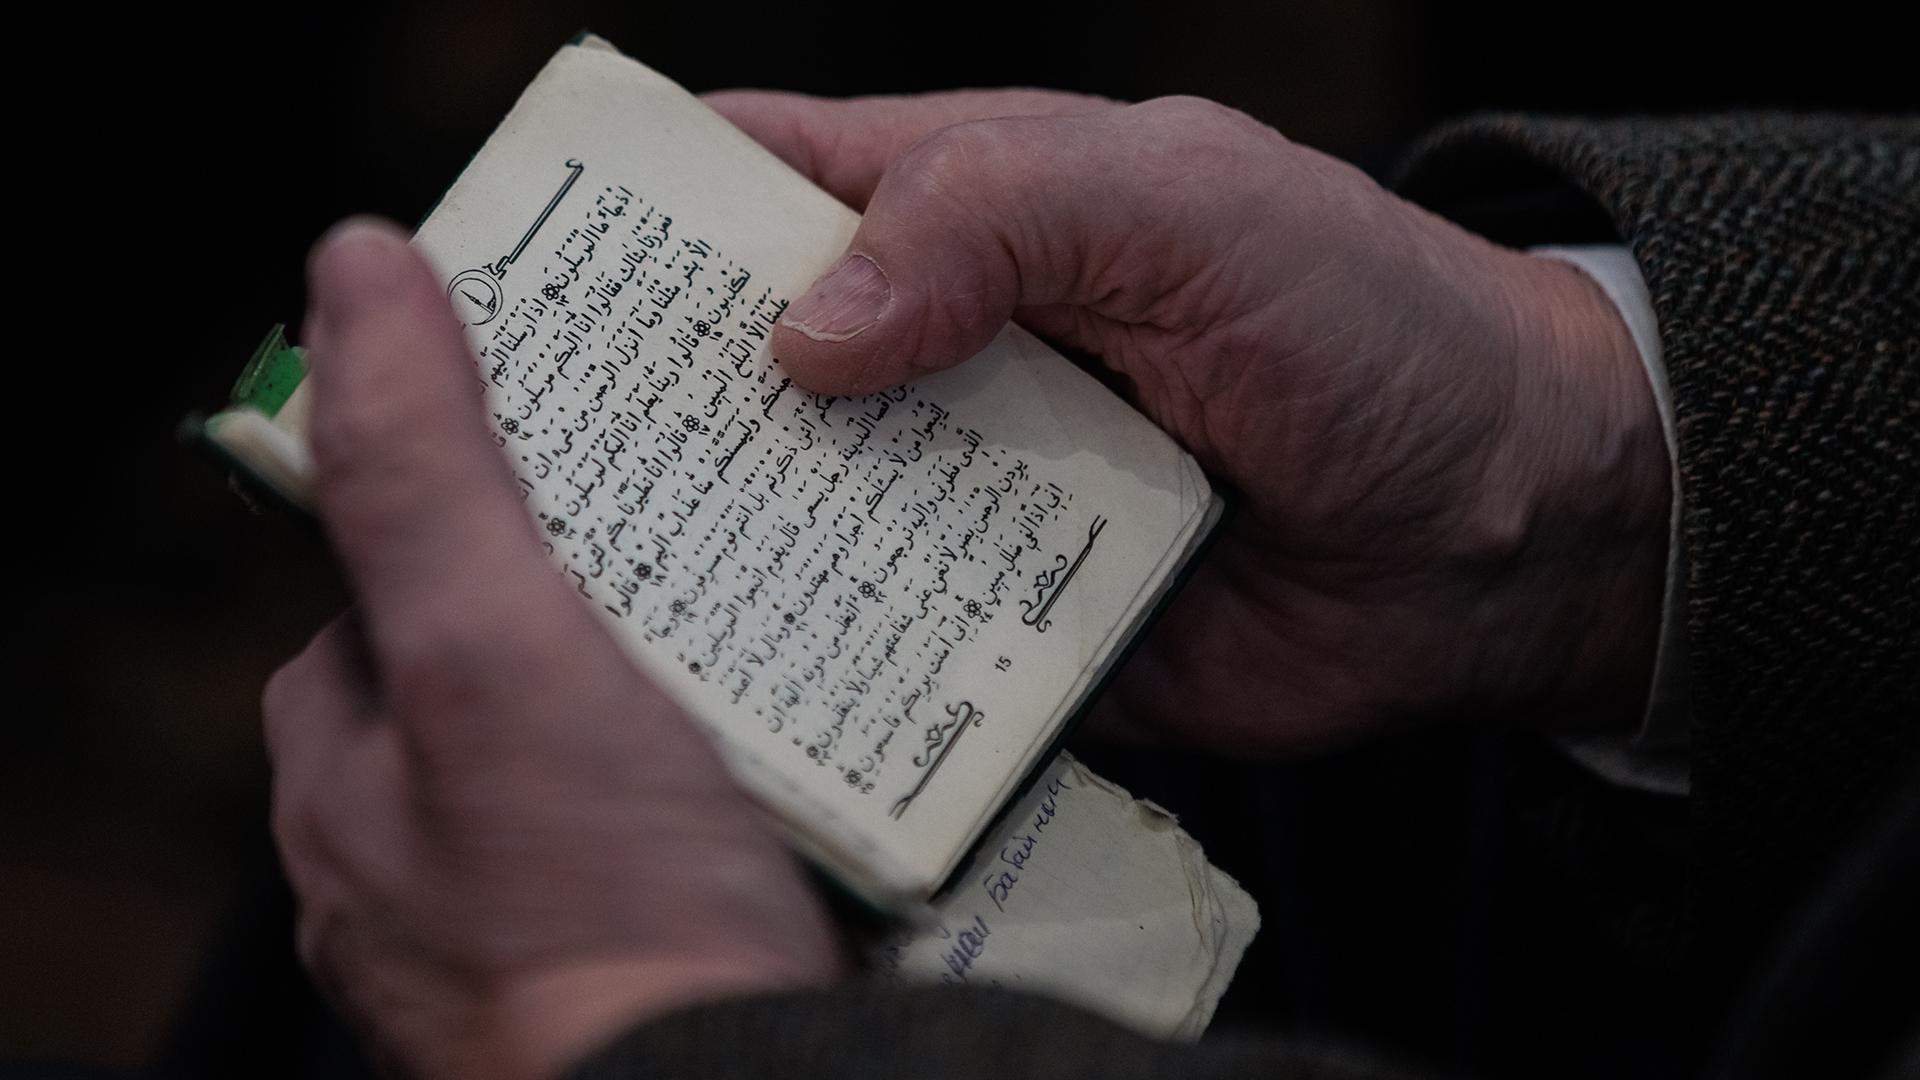 اِذْجَاءَهَا الْمُرْسَلُونَ ١٣ اِذْ اَرْسَلْنَا اِلَيْهِمُ
فَعَزَّزْنَا بِثَالِثٍ فَقَالُوا اِنَّا اِلَيْكُمْ مُرْسَلُونَ ١٤
اِلَّا بَشَرٌ مِثْلُنَا وَمَا اَنْزَلَ الرَّحْمٰنُ مِنْ شَىْءٍ اِنْ
تَكْذِبُونَ ١٥ قَالُوا رَبُّنَا يَعْلَمُ اِنَّا اِلَيْكُمْ لَمُرْسَلُونَ ١٦ وَ
عَلَيْنَا اِلَّا الْبَلٰغُ الْمُبِينُ ١٧ قَالُوا اِنَّا تَطَيَّرْنَا بِكُمْ لَئِنْ لَمْ
وَلَيَمَسَّنَّكُمْ مِنَّا عَذَابٌ اَلِيمٌ ١٨ قَالُوا
اَئِنْ ذُكِّرْتُمْ بَلْ اَنْتُمْ قَوْمٌ مُسْرِفُونَ ١٩ وَجَاءَ
مِنْ اَقْصَا الْمَدِينَةِ رَجُلٌ يَسْعٰى قَالَ يٰقَوْمِ اتَّبِعُوا الْمُرْسَلِينَ ٢٠
اِتَّبِعُوا مَنْ لَا يَسْئَلُكُمْ اَجْرًا وَهُمْ مُهْتَدُونَ ٢١ وَمَالِىَ لَا اَعْبُدُ
الَّذِى فَطَرَنِى وَاِلَيْهِ تُرْجَعُونَ ٢٢ ءَاَتَّخِذُ مِنْ دُونِهِ اٰلِهَةً اِنْ
يُرِدْنِ الرَّحْمٰنُ بِضُرٍّ لَا تُغْنِ عَنِّى شَفَاعَتُهُمْ شَيْئًا وَلَا يُنْقِذُونِ ٢٣
اِنِّى اِذًا لَفِى ضَلٰلٍ مُبِينٍ ٢٤ اِنِّى اٰمَنْتُ بِرَبِّكُمْ فَاسْمَعُونِ ٢٥
15